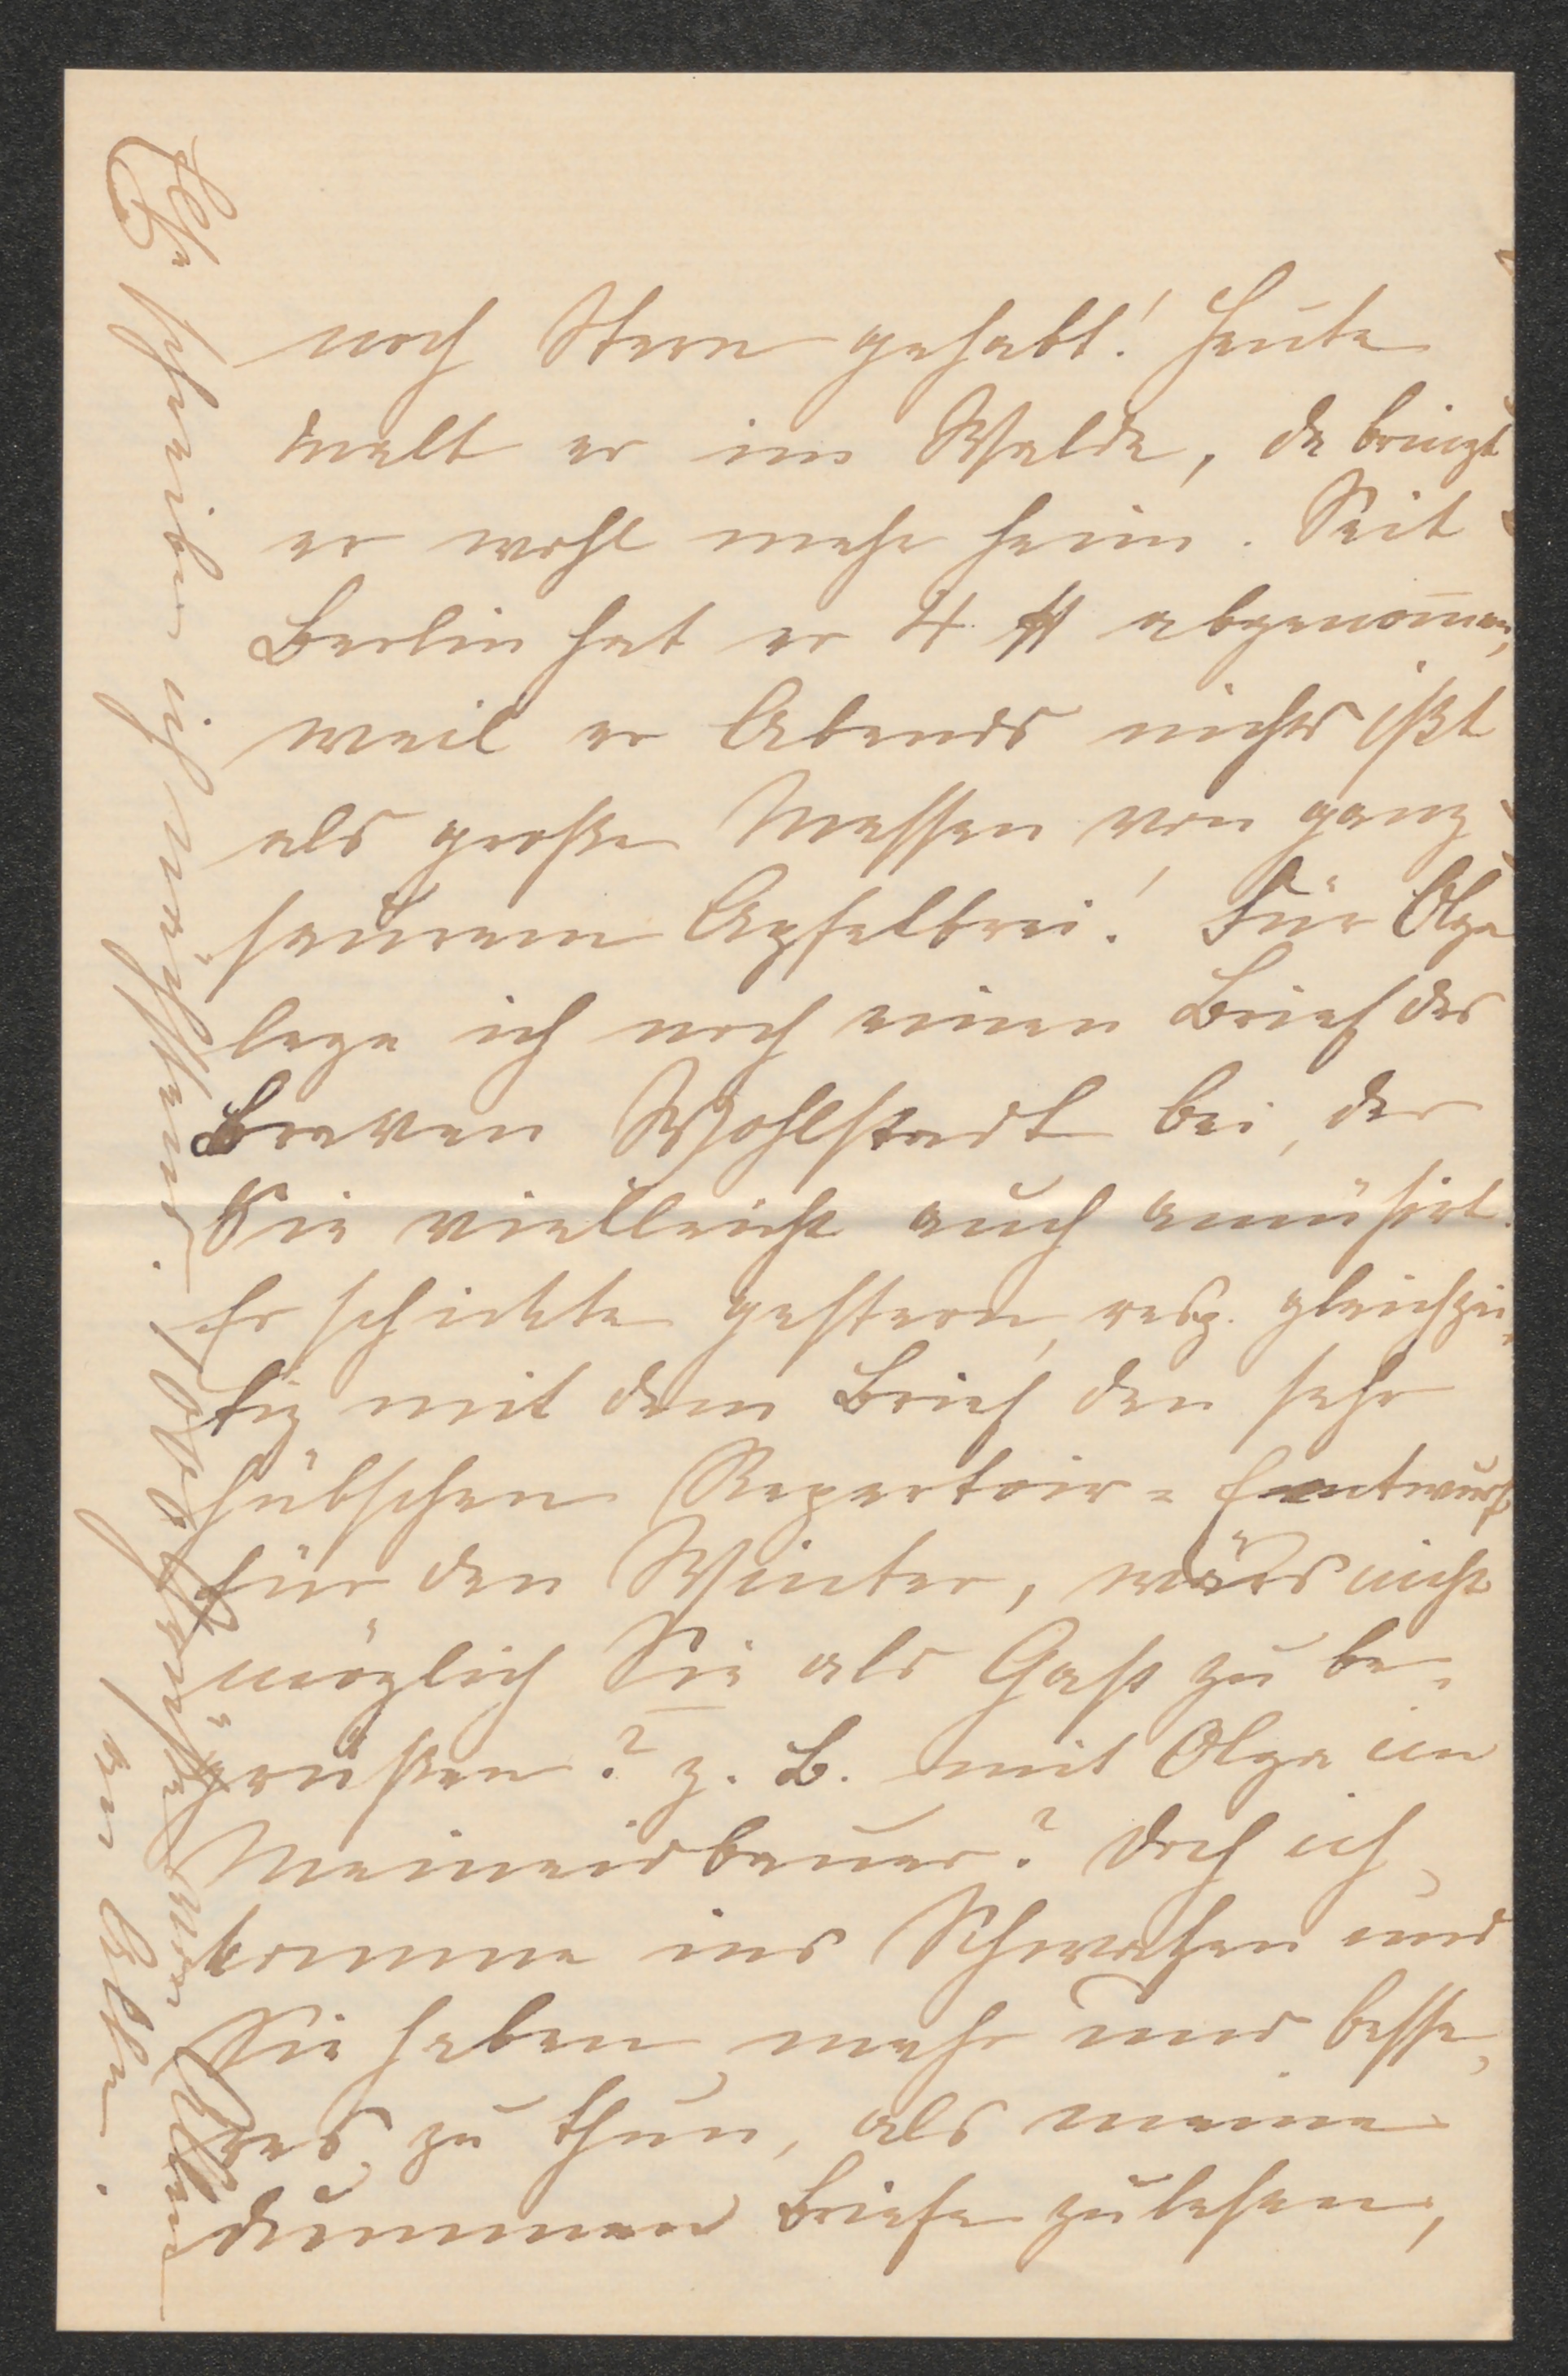 noch Stern gehabt! Heute
malt er im Walde, da bringt
er wohl mehr heim. Seit
Berlin hat er 4 ℔ abgenom̅en,
weil er Abends nichts ißt
als große Massen von ganz
saurem Apfelbrei! Für Olga
lege ich noch einen Brief des
braven Wohlstadt bei, der
Sie vielleicht auch amüsirt.
Er schickte gestern, resp. gleichzei-
tig mit dem Brief den sehr
hübschen Repertoir-Entwurf
für den Winter, wärs nicht
möglich Sie als Gast zu be-
grüßen? z. B. mit Olga im
Meineidbauer? Doch ich
komme ins Schwatzen und
Sie haben mehr und besse-
res zu thun, als meine
dummen Briefe zu lesen,
schreiben ich nächstens. 1000
von Allen
an Alle.